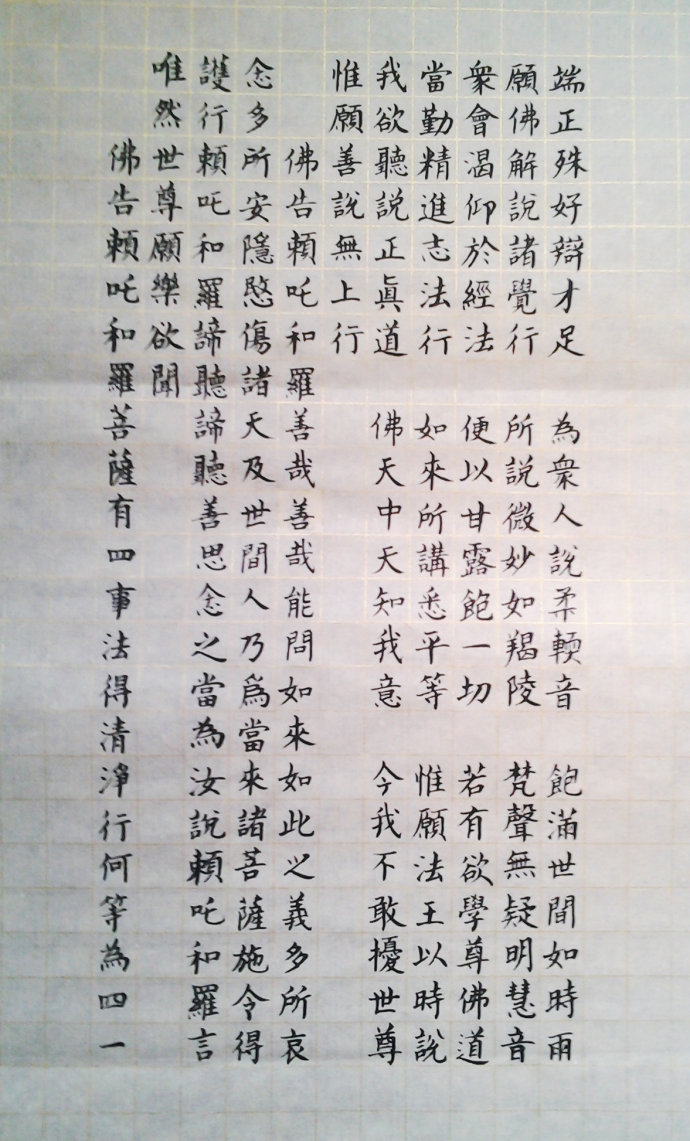 端正殊好辯才足　為衆人說柔輭音　飽滿世間如時雨
願佛解說諸覺行　所說微妙如羯陵　梵聲無疑明慧音
衆會渴仰於經法　便以甘露飽一切　若有欲學尊佛道
當勤精進志法行　如來所講悉平等　惟願法王以時說
我欲聽說正眞道　佛天中天知我意　今我不敢擾世尊
惟願善說無上行
佛告頼吒和羅善哉善哉能問如來如此之義多所哀
念多所安隱愍傷諸天及世間人乃爲當來諸菩薩施令得
護行頼吒和羅諦聽諦聽善思念之當為汝說頼吒和羅言
唯然世尊願樂欲聞
佛告頼吒和羅菩薩有四事法得清淨行何等為四一